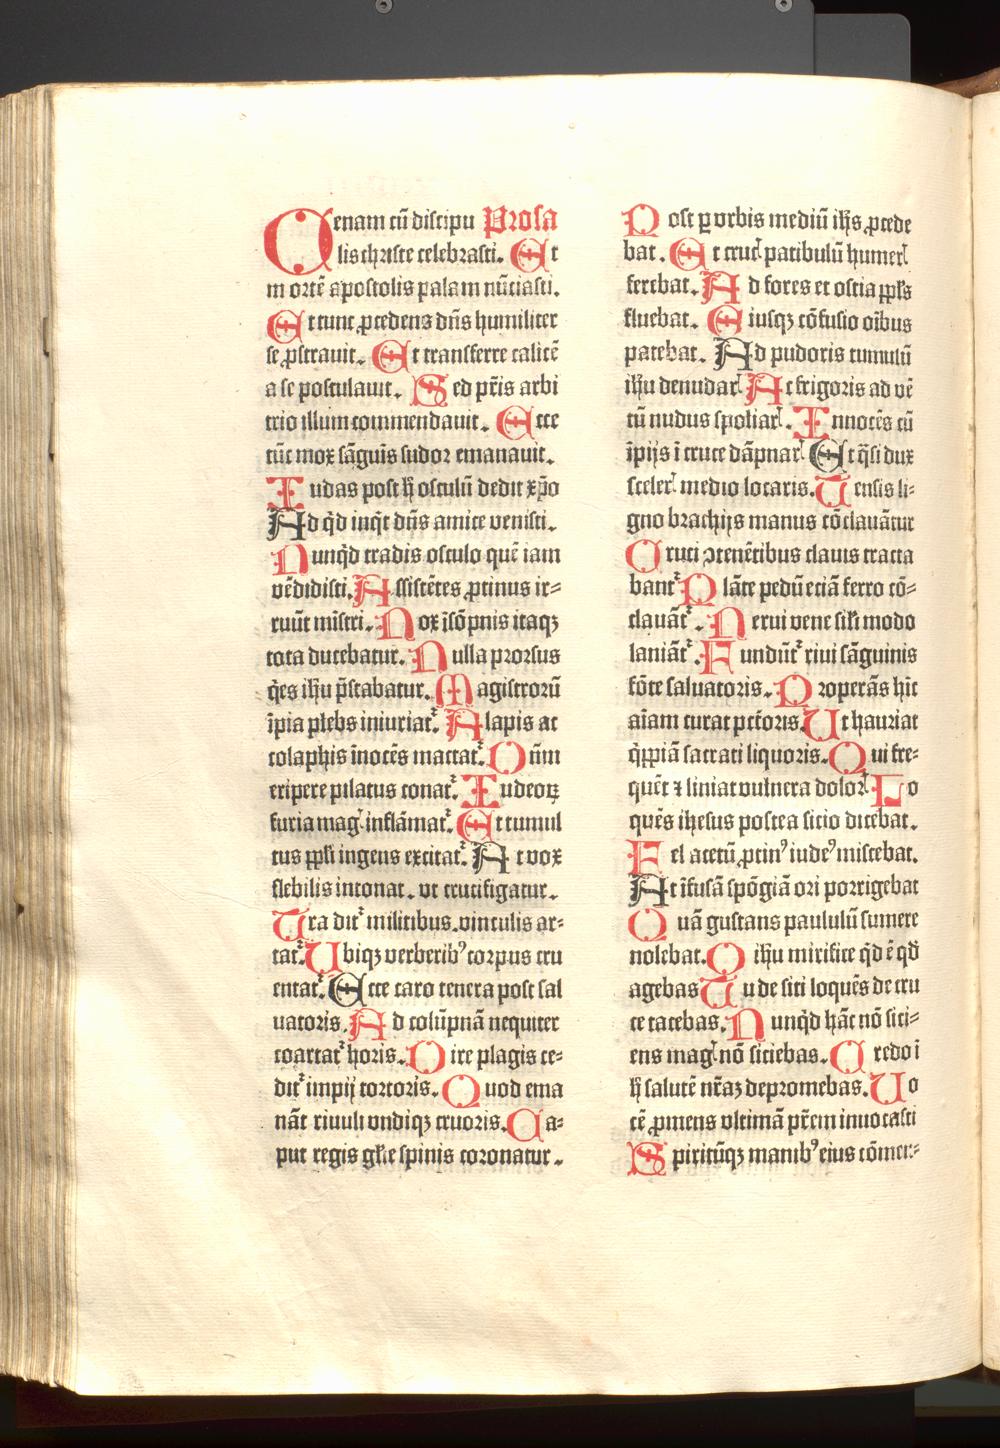 Cenam cū discipu Prosa
lis christe celebrasti. Et
mortē apostolis palam nūciasti.
Et tunc ꝓcedens dn̄s humiliter
se ꝓstrauit. Et transferre calicē
a se postulauit. Sed pr̄is arbi
trio illum commendauit. Ecce
tūc mox sāguis sudor emanauit.
Iudas post h̄ osculū dedit xp̄o
Ad qd̄ inqͥt dn̄s amice venisti.
Nunqͥd tradis osculo quē iam
vēdidisti. Assistētes ꝓtinus ir⸗
ruūt mīstri. Nox īsōpnis itaqꝫ
tota ducebatur. Nulla prorsus
qͥes ihu p̄stabatur. Magistrorū
īpia plebs iniuriat᷑. Alapis ac
colaphis īnocēs mactat᷑. Dn̄m
eripere pilatus conat᷑. Iudeoꝝ
furia mag̛ inflāmat᷑. Et tumul
tus ppl̄i ingens excitat᷑. At vox
flebilis intonat. vt crucifigatur.
Tradit᷑ militibus. vinculis ar⸗
tat᷑. Ubiqꝫ verberibꝰ corpus cru
entat᷑. Ecce caro tenera post sal
uatoris. Ad colūpnā nequiter
coartat᷑ horis. Dire plagis ce⸗
dit᷑ impij tortoris. Quod ema
nāt riuuli vndiqꝫ cruoris. Ca⸗
put regis gl̄ie spinis coronatur.
Post ꝑ vrbis mediū ih̄s ꝓcede
bat. Et cruc̛ patibulū humer̛
ferebat. Ad fores et ostia ppl̄s
fluebat. Eiusqꝫ cōfusio oībus
patebat. Ad pudoris cumulū
ih̄u denudar̛ At frigoris ad vē
tū nudus spoliar̛. Innocēs cū
īpijs ī cruce dāpnar̛ Et qͣsi dux
sceler̛ medio locaris. Tensis li⸗
gno brachijs manus cōclauātur
Cruci ↄtenētibus clauis tracta
bant᷑ Plāte pedū eciā ferro cō⸗
clauāt᷑. Nerui vene sil̄i modo
laniāt᷑. Fundūt᷑ riui sāguinis
fōte saluatoris. Properās hīc
aīam curat pctōris. Ut hauriat
qͥppiā sacrati liquoris. Qui fre⸗
quēt ⁊ liniat vulnera dolor̛ Lo
quēs ihesus postea sicio dicebat.
Fel acetū ꝓtinꝰ iudeꝰ miscebat.
At īfusā spōgiā ori porrigebat
Quā gustans paululū sumere
nolebat. O ih̄u mirifice qͥd ē qd̄
agebas Tu de siti loquēs de cru
ce tacebas. Nunqͥd hāc nō siti⸗
ens mag̛ nō siciebas. Credo ī
h̄ salutē nr̄aꝫ depromebas. Uo
cē ꝓmens vltimā pr̄em inuocasti
Spiritūqꝫ manibꝰ eius cōmen⸗